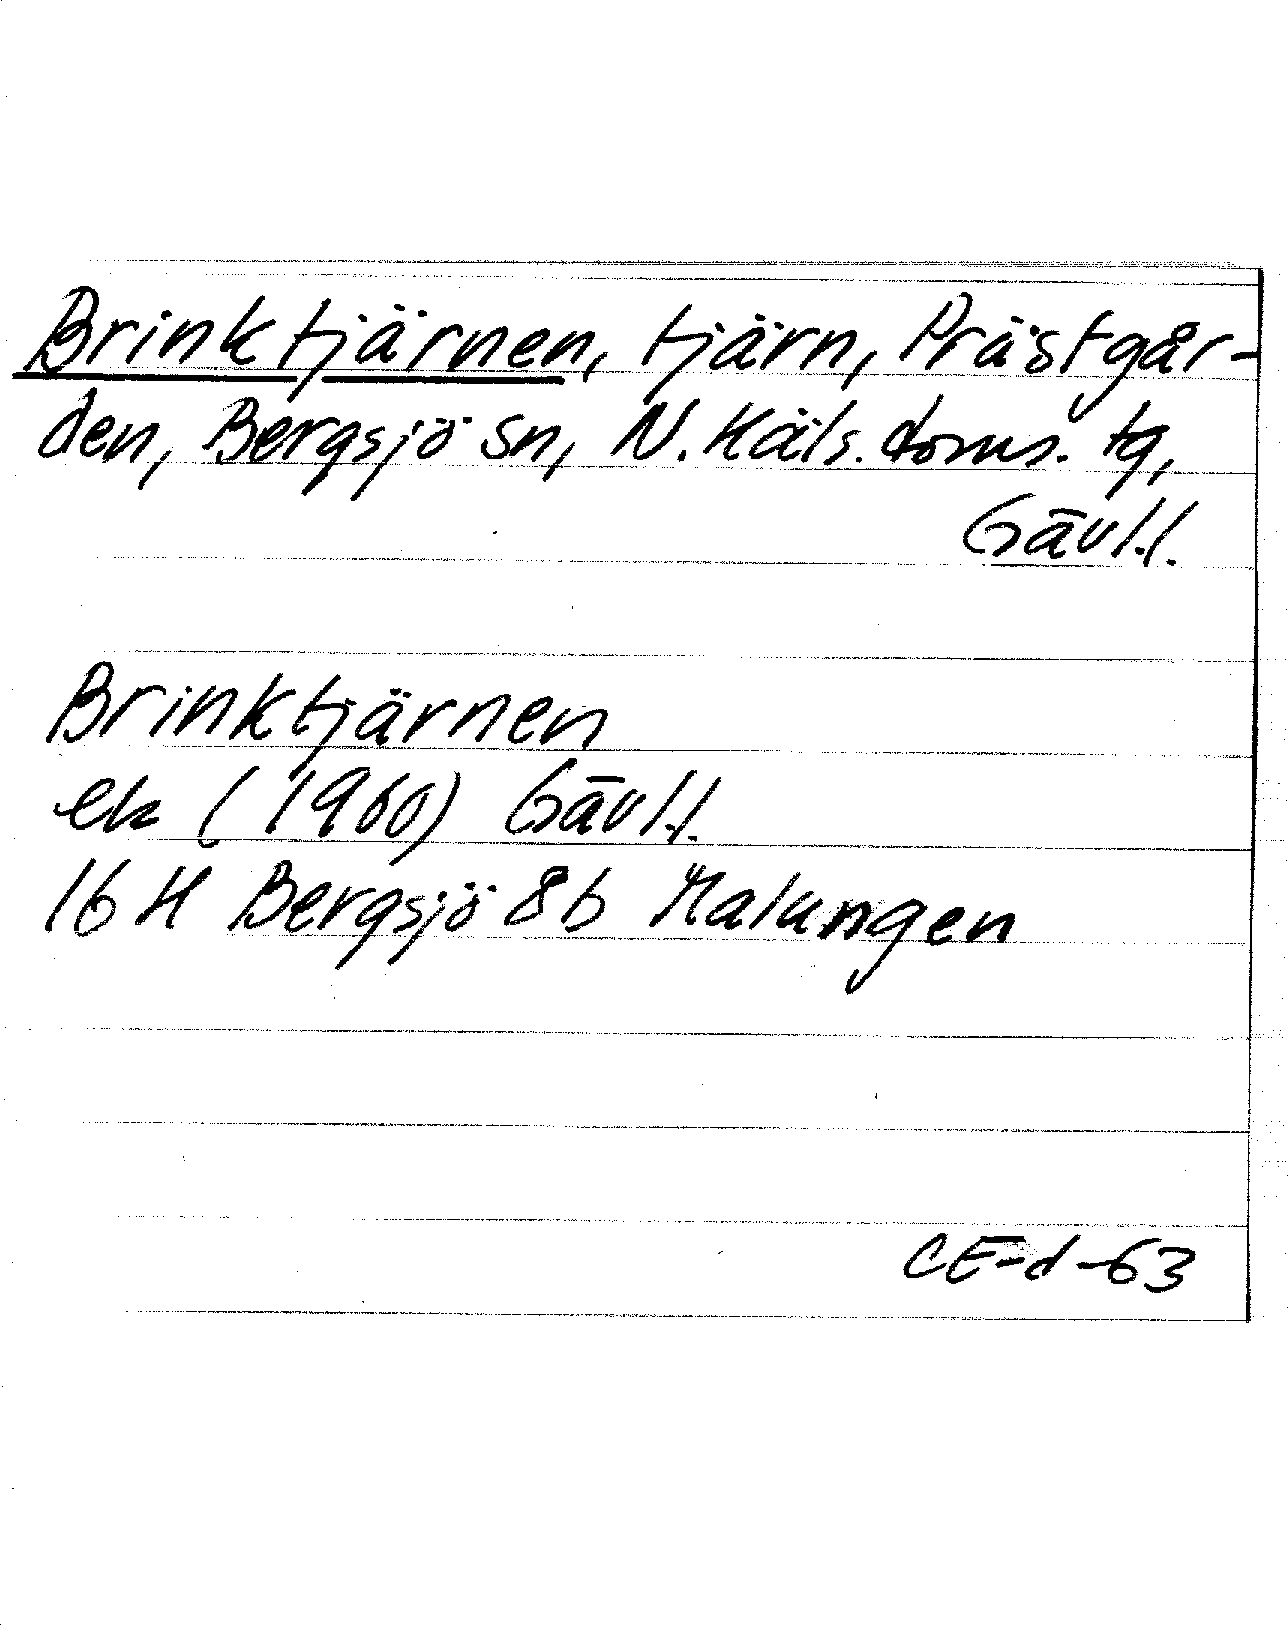 Brinktjärnen, tjärn, Prästgår-
den, Bergsjö sn, N. Häls. doms. tg,
Gävl.l.
Brinktjärnen
ek (1960) Gävl.l.
16 H Bergsjö 8b Malungen
CE-d-63